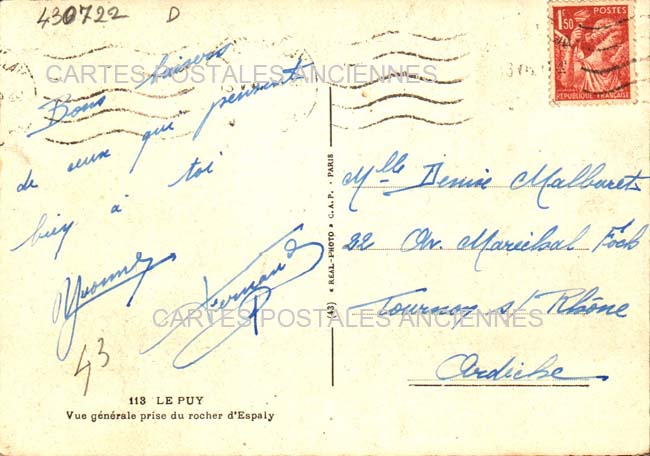 430722 D
POSTES
1F50
RÉPUBLIQUE FRANÇAISE
CARTES POSTALES ANCIENNES
Bons baisers
de ceux que pensent
bien à toi
Yvonne Fernand
43
113 LE PUY
Vue générale prise du rocher d'Espaly
(43) « RÉAL-PHOTO » C.A.P. - PARIS
Mlle Denise Malburet
22 Av. Maréchal Foch
Tournon s/ Rhône
Ardèche
CARTES POSTALES ANCIENNES